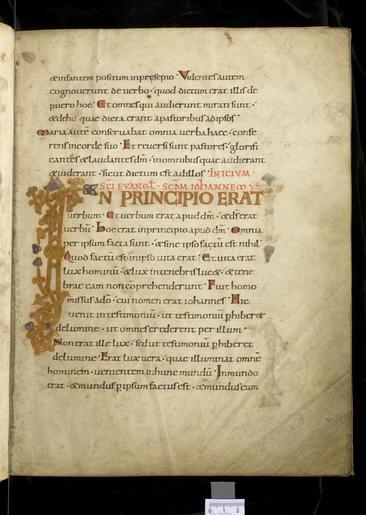 & infantem positum in presepio · Videntes autem
cognoverunt de verbo · quod dictum erat illis de
puero hoc · Et omnes qui audierunt mirati sunt ·
& de his quae dicta erant a pastoribus ad ipsos
Maria autem conservabat omnia verba haec · confe
rens in corde suo · Et reversi sunt pastores · glorifi
cantes & laudantes dm̄ · in omnibus quae audierant
& viderant · sicut dictum est ad illos INICIUM
SC̄I EVANGL̄ · SCDM̄ IOHANNEM
IN PRINCIPIO ERAT
verbum · Et verbum erat apud dm̄ · & ds̄ erat
verbū · Hoc erat in principio apud dm̄ · Omnia
per ipsum facta sunt · & sine ipso factū est nihil
Quod factū est in ipso vita erat · Et vita erat
lux hominū · & lux in tenebris luc& · & tene
brae eam non comprehenderunt · Fuit homo
missus a dō · cui nomen erat iohannes · Hic
venit in testimoniū · ut testimoniū phiber&
de lumine · ut omnes crederent per illum ·
Non erat ille lux · sed ut testimoniū phiberet
de lumine · Erat lux vera · quae illuminat omnē
hominem · venientem in hunc mundū · In mundo
erat · & mundus p ipsum factus est · & mundus eum